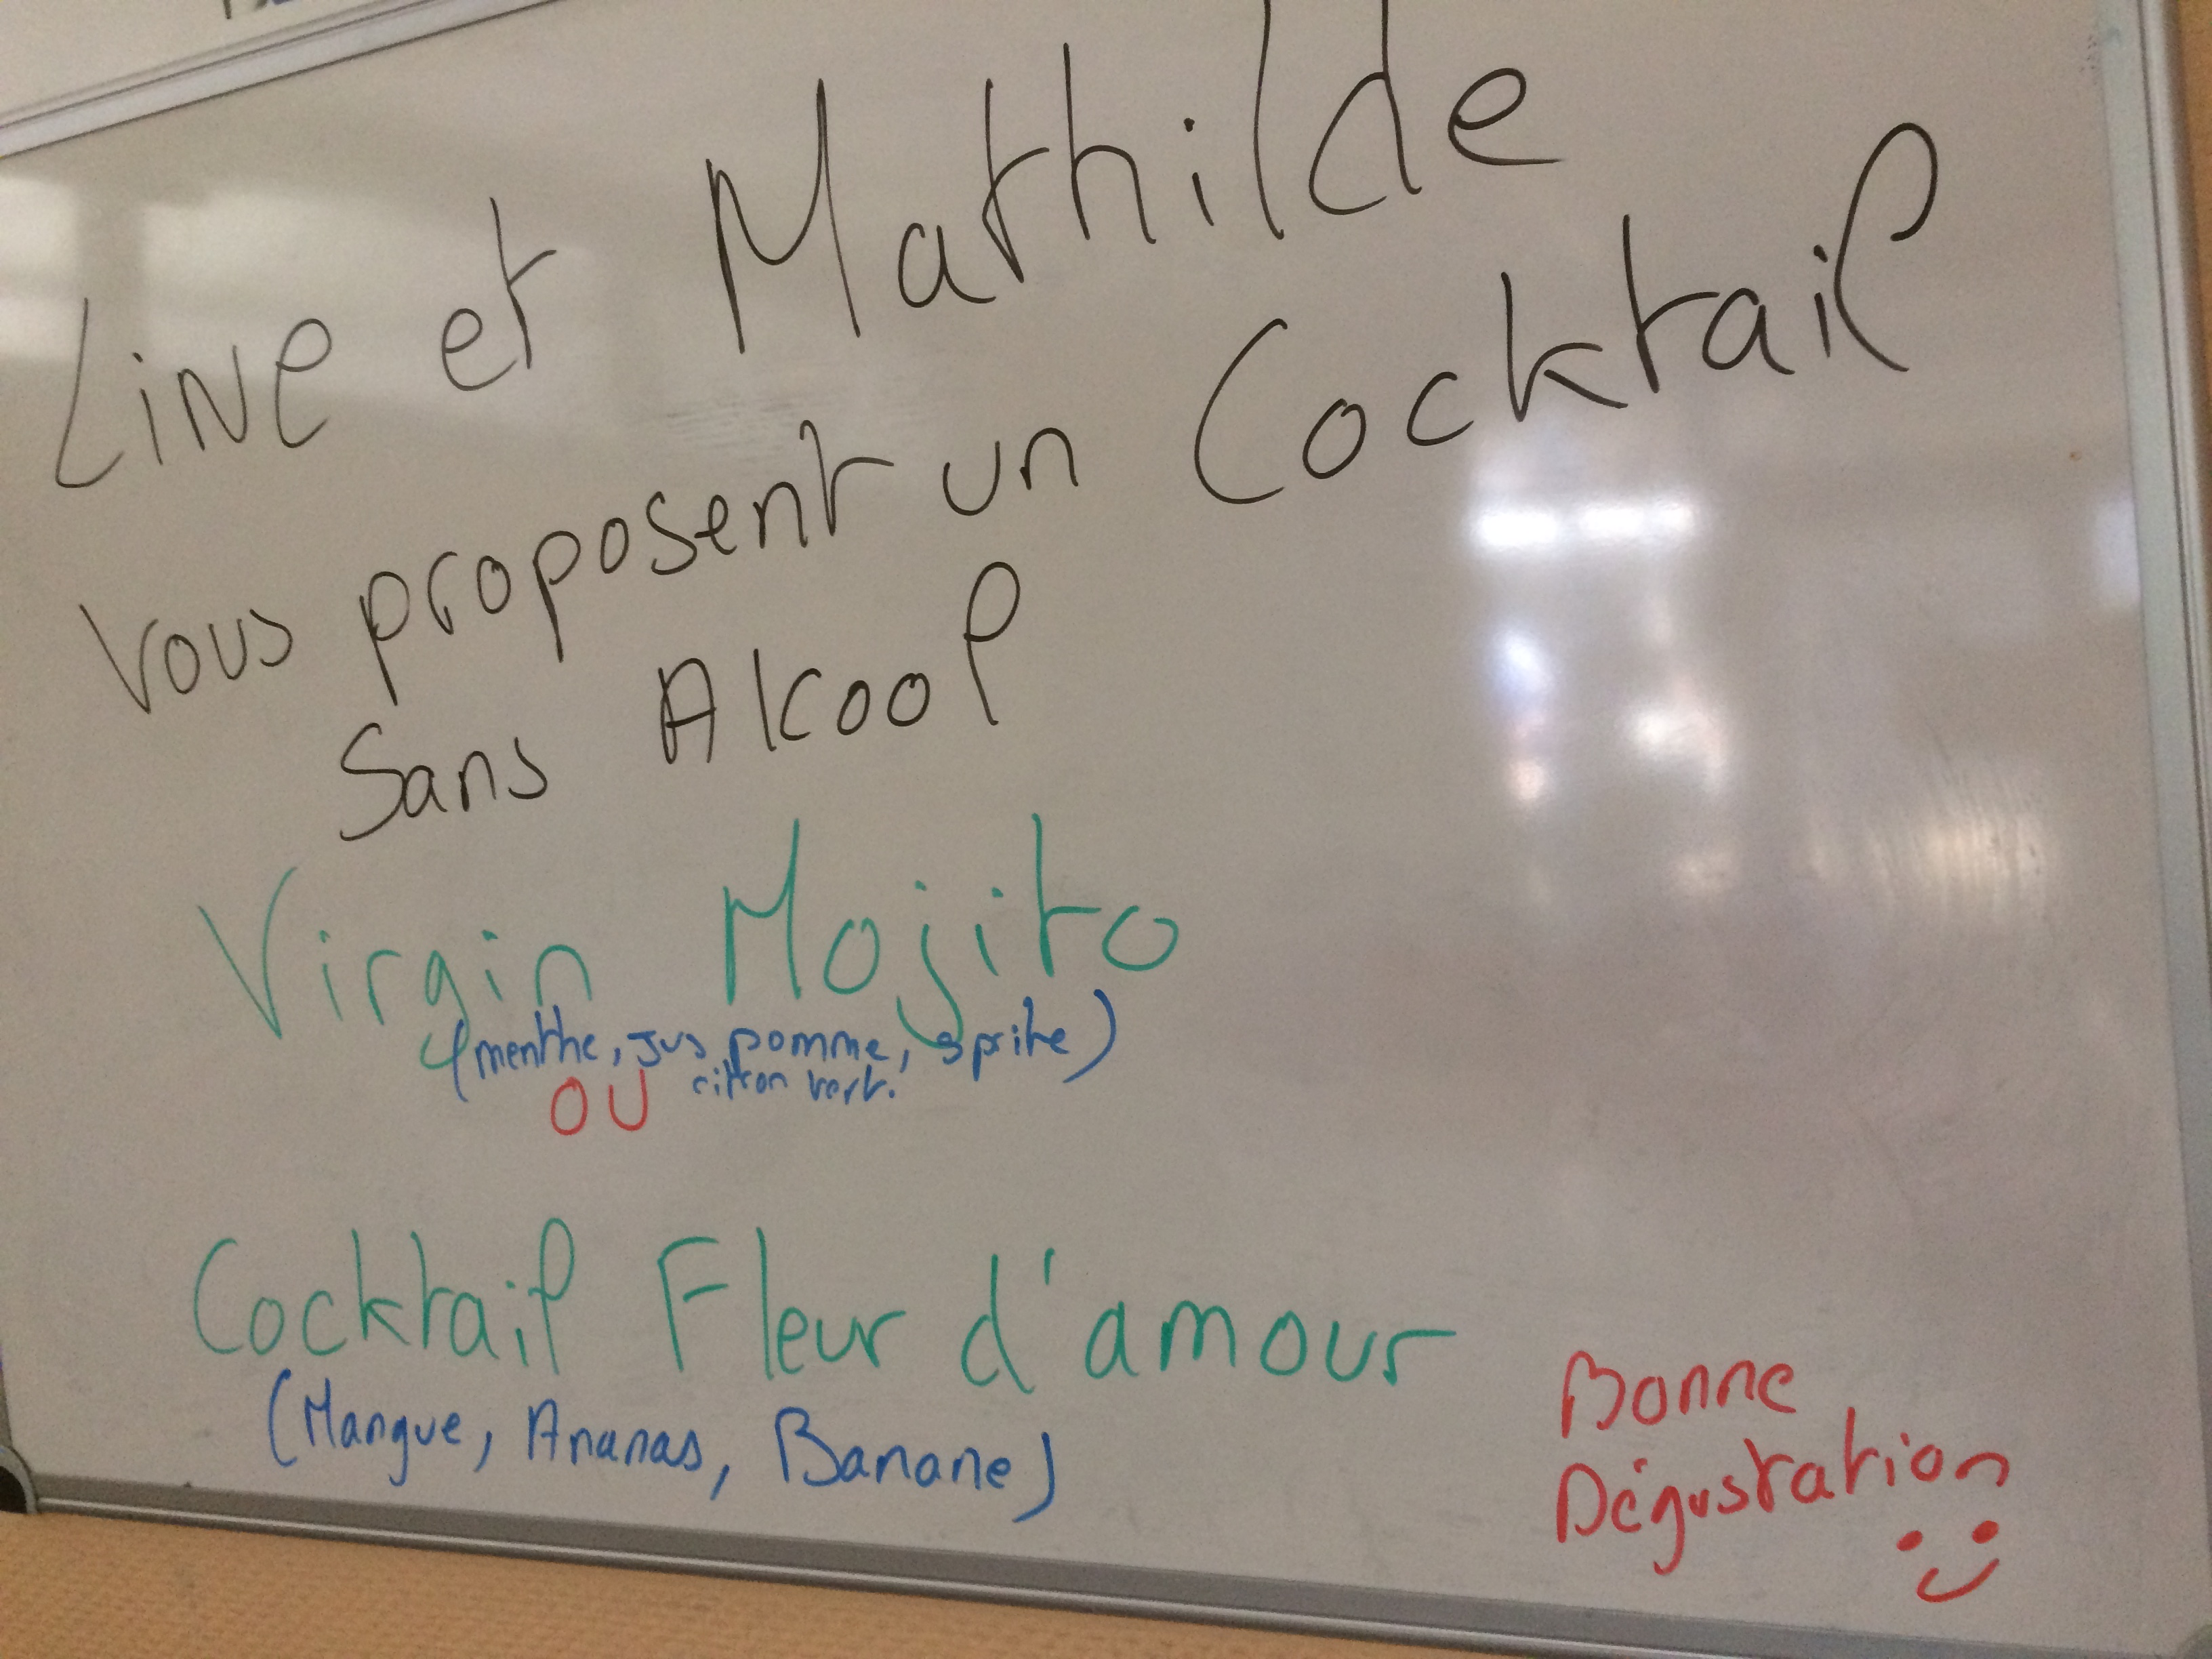 Line et Mathilde
vous proposent un Cocktail
Sans Alkool
Virgin Mojito
(menthe, jus pomme, sprite)
citron vert.
OU
Cocktail Fleur d'amour
(Mangue, Ananas, Banane)
Bonne
Dégustation